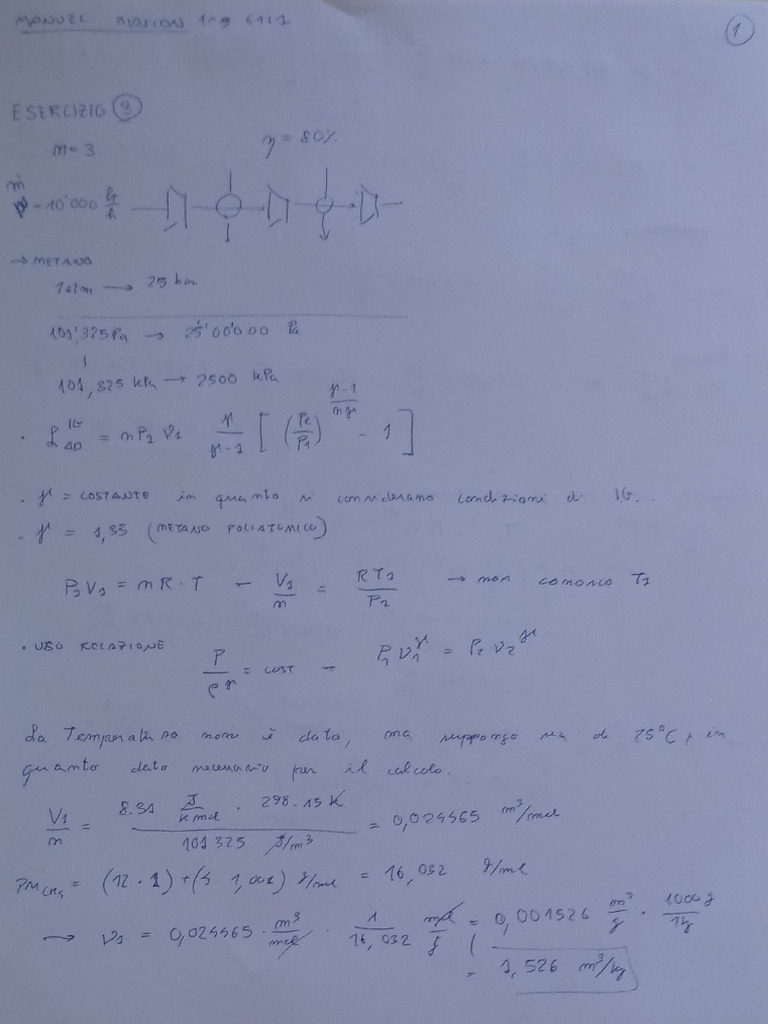 MANUEL
1
ESERCIZIO 3
n = 3 η = 80%
ṁ = 10'000 kg/h
→ METANO
1 atm → 25 bar
101'325 Pa → 25'00'000 Pa
101,325 kPa → 2500 kPa
· L_AD^IG = n P_1 V_1 γ/(γ-1) [ (P_2/P_1)^((γ-1)/(nγ)) - 1 ]
· γ = COSTANTE in quanto si considerano condizioni di IG.
· γ = 1,33 (METANO POLIATOMICO)
P_1 V_1 = n R · T → V_1/n = R T_1/P_1 → non conosco T_1
· USO RELAZIONE P/ρ^γ = COST → P_1 V_1^γ = P_2 V_2^γ
La Temperatura non è data, ma suppongo sia di 25°C, in
quanto dato necessario per il calcolo.
V_1/n = (8.31 J/K mol · 298.15 K)/(101325 J/m³) = 0,024465 m³/mol
PM_CH4 = (12 · 1) + (4 · 1,008) g/mol = 16,032 g/mol
→ V_1 = 0,024465 · m³/mol · 1/16,032 mol/g = 0,001526 m³/g · 1000 g/1 kg
= 1,526 m³/kg